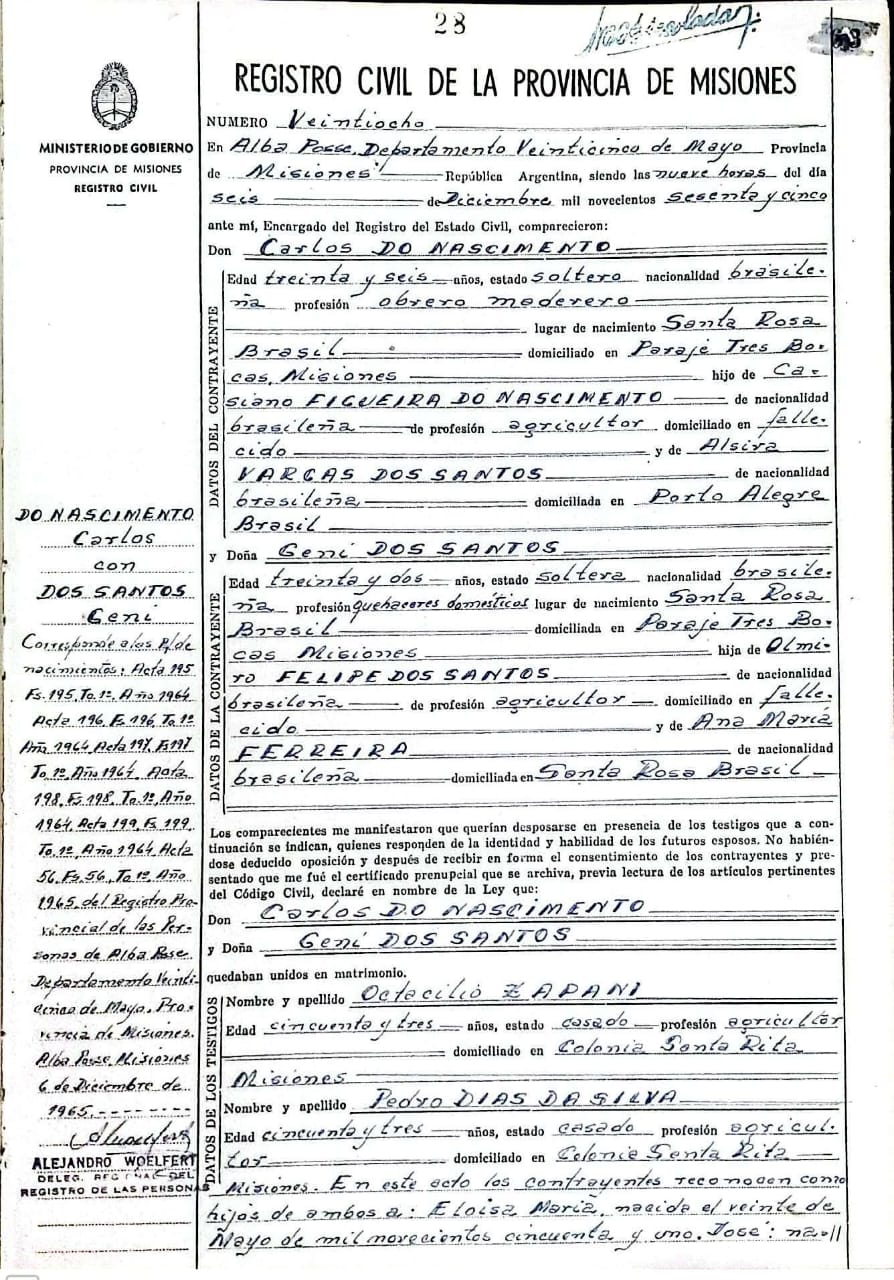 28
REGISTRO CIVIL DE LA PROVINCIA DE MISIONES
MINISTERIO DE GOBIERNO
PROVINCIA DE MISIONES
REGISTRO CIVIL
NUMERO Veintiocho
En Alba Posse, Departamento Veinticinco de Mayo Provincia
de Misiones República Argentina, siendo las nueve horas del día
seis de Diciembre mil novecientos sesenta y cinco
ante mí, Encargado del Registro del Estado Civil, comparecieron:
Don Carlos DO NASCIMENTO
DATOS DEL CONTRAYENTE
Edad treinta y seis años, estado soltero nacionalidad brasile-
ña profesión obrero maderero
lugar de nacimiento Santa Rosa
Brasil domiciliado en Paraje Tres Bo-
cas, Misiones hijo de Ca-
siano FIGUEIRA DO NASCIMENTO de nacionalidad
brasileña de profesión agricultor domiciliado en falle-
cido y de Alsira
VARGAS DOS SANTOS de nacionalidad
brasileña domiciliada en Porto Alegre
Brasil
y Doña Geni DOS SANTOS
DATOS DE LA CONTRAYENTE
Edad treinta y dos años, estado soltera nacionalidad brasile-
ña profesión quehaceres domesticos lugar de nacimiento Santa Rosa
Brasil domiciliada en Paraje Tres Bo-
cas Misiones hija de Olmi-
ro FELIPE DOS SANTOS de nacionalidad
brasileña de profesión agricultor domiciliado en falle-
cido y de Ana María
FERREIRA de nacionalidad
brasileña domiciliada en Santa Rosa Brasil
Los comparecientes me manifestaron que querían desposarse en presencia de los testigos que a con-
tinuación se indican, quienes responden de la identidad y habilidad de los futuros esposos. No habién-
dose deducido oposición y después de recibir en forma el consentimiento de los contrayentes y pre-
sentado que me fué el certificado prenupcial que se archiva, previa lectura de los artículos pertinentes
del Código Civil, declaré en nombre de la Ley que:
Don Carlos DO NASCIMENTO
y Doña Geni DOS SANTOS
quedaban unidos en matrimonio.
DATOS DE LOS TESTIGOS
Nombre y apellido Octacilio ZAPANI
Edad cincuenta y tres años, estado casado profesión agricultor
domiciliado en Colonia Santa Rita
Misiones
Nombre y apellido Pedro DIAS DA SILVA
Edad cincuenta y tres años, estado casado profesión agricul-
tor domiciliado en Colonia Santa Rita
Misiones. En este acto los contrayentes reconocen como
hijos de ambos a: Eloisa Maria, nacida el veinte de
Mayo de mil novecientos cincuenta y uno. José: na-//
DO NASCIMENTO
Carlos
con
DOS SANTOS
Geni
Corresponde a las P/de
nacimientos: Acta 195
Fs. 195, To. 1º, Año 1964
Acta 196, Fs 196, To. 1º
Año 1964, Acta 197, Fs 197
To. 1º, Año 1964, Acta
198, Fs. 198, To. 1º, Año
1964, Acta 199, Fs. 199,
To. 1º, Año 1964 Acta
56, Fs. 56, To. 1º, Año
1965 del Registro Pro-
vincial de las Per-
sonas de Alba Posse
Departamento Veinti-
cinco de Mayo, Pro-
vincia de Misiones.
Alba Posse, Misiones
6 de Diciembre de
1965.--------
ALEJANDRO WOELFERT
DELEG. REGIONAL DEL
REGISTRO DE LAS PERSONAS